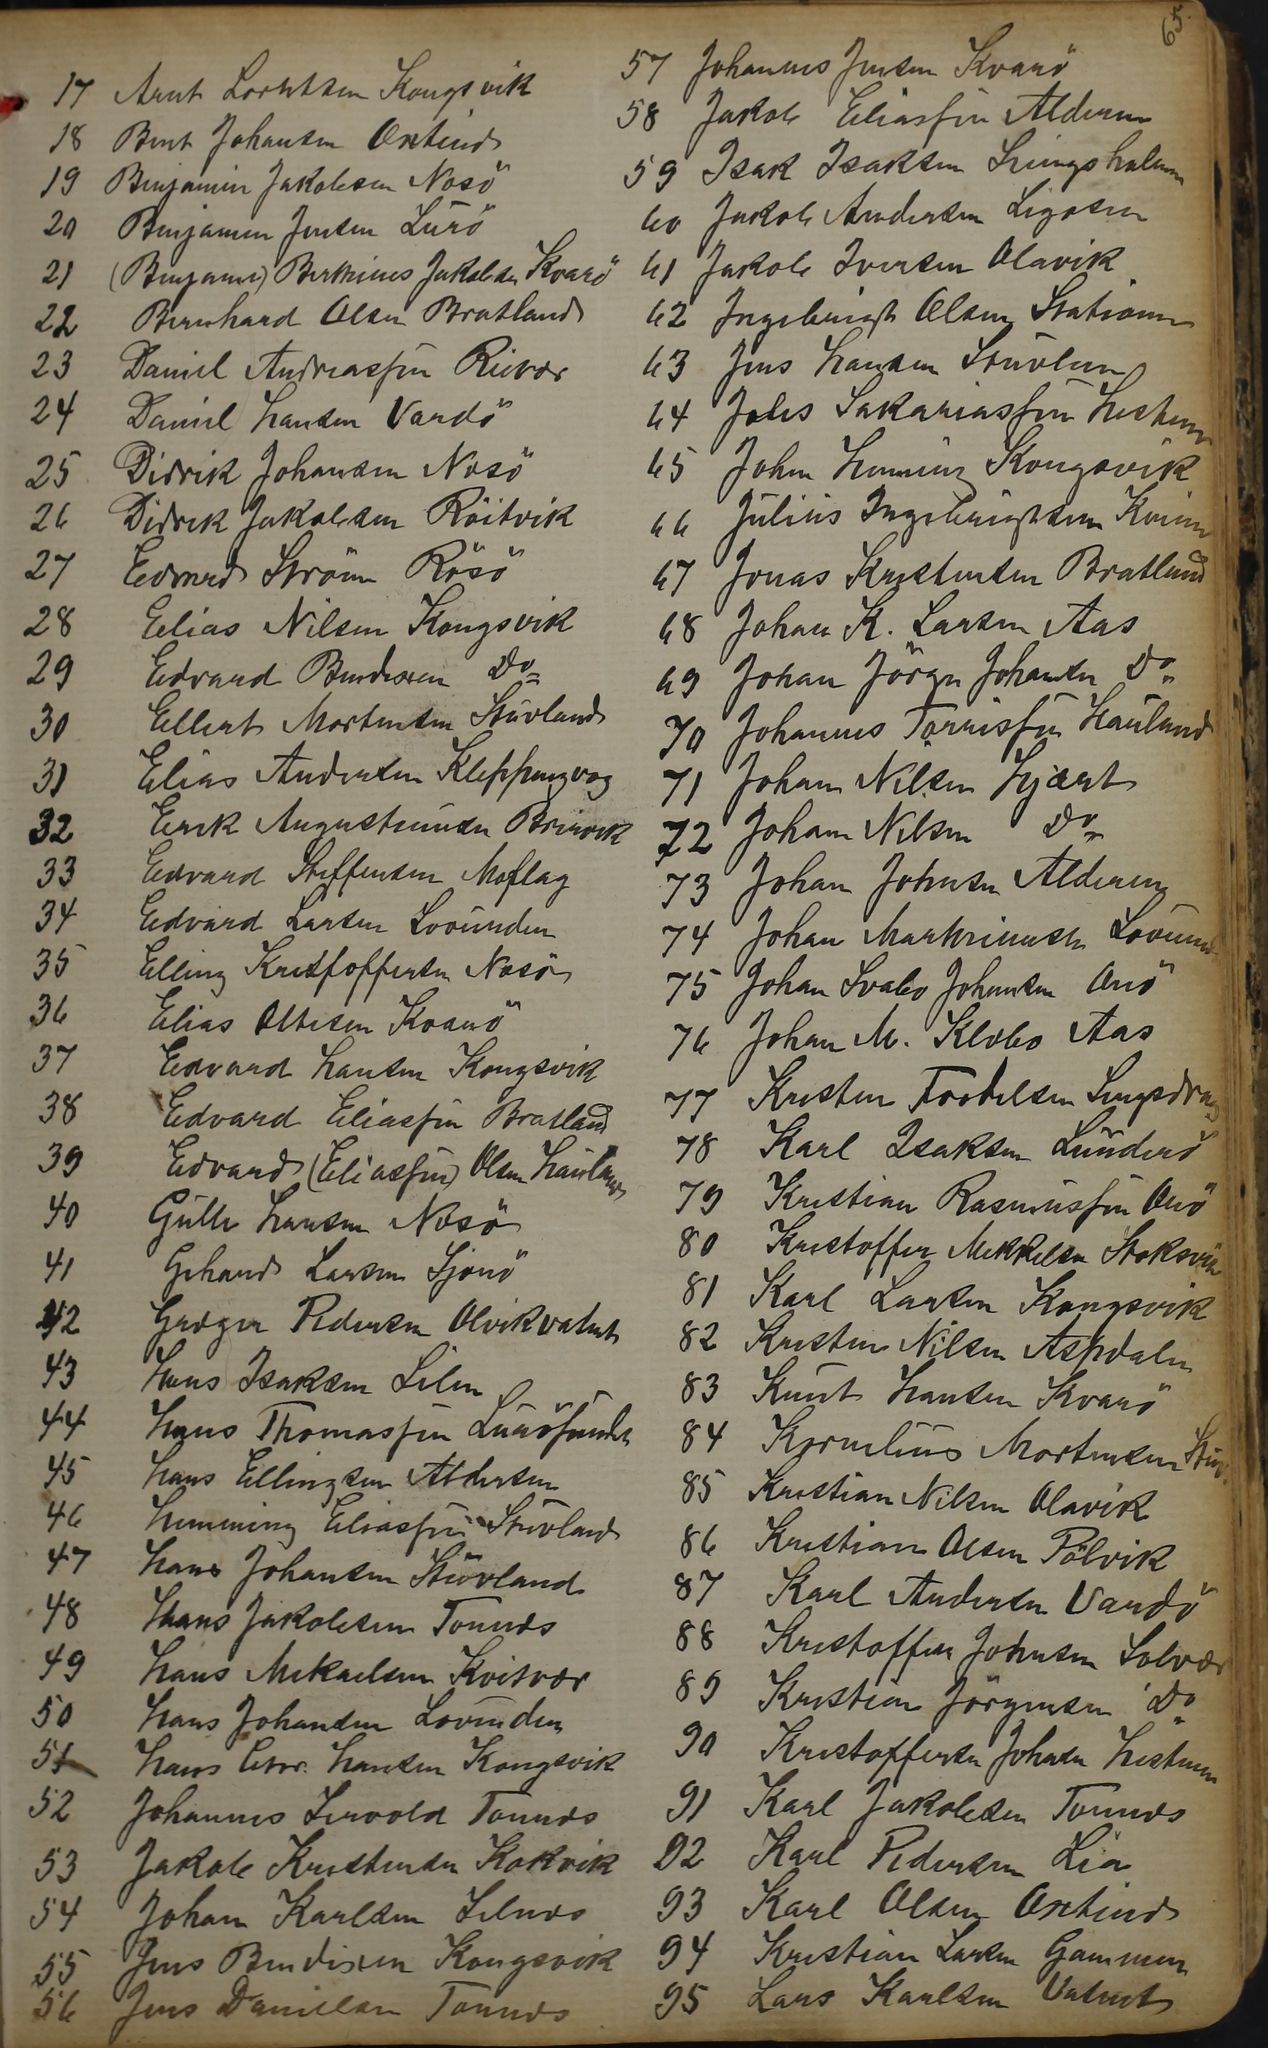 65
17 Arnt Lorntsen Kongsvik
18 Bent Johansen Oxtind
19 Benjamin Jakobsen Nosö
20 Benjamin Jensen Lurö
21 (Benjamin) Berthinus Jakobsen Kvarö
22 Bernhard Olsen Bratland
23 Daniel Andreasfen Rievær
24 Daniel Hansen Vardö
25 Didrik Johansen Nosö
26 Didrik Jakobsen Röitvik
27 Edvard Ström Rösö
28 Elias Nilsen Kongsvik
29 Edvard Bendixen Do
30 Ellert Mortensen Stuvland
31 Elias Andersen Kleppingvog
32 Erik Augustinusen
33 Edvard Steffensen Moflag
34 Edvard Larsen Lovunden
35 Elling Kristoffersen Nosö
36 Elias Olsen Kvarö
37 Edvard Hansen Kongsvik
38 Edvard Eliasfen Bratland
39 Edvard (Eliasfen) Olsen Hauland
40 Gulle Hansen Nosö
41 Gerhard Larsen Sjonö
42 Gregor Pedersen Olvikvatnet
43 Hans Isaksen Silen
44 Hans Thomasfen Luröfundet
45 Hans Ellingsen Alderen
46 Hemming Eliasfen Stuvland
47 Hans Johansen Stuvland
48 Hans Jakobsen Tonnes
49 Hans Mikaelsen Kvitvær
50 Hans Johansen Lovunden
51 Hans Chr. Hansen Kongsvik
52 Johannes Servold Tonnes
53 Jakob Kristensen Kokvik
54 Johan Karlsen Selnes
55 Jens Bendixen Kongsvik
56 Jens Danielsen Tonnes
57 Johannes Jensen Kvarö
58 Jakob Eliasfen Alderen
59 Isak Isaksen Lyngholmen
60 Jakob Andersen Ligosen
61 Jakob Iversen Olavik
62 Ingebrigt Olsen Stationen
63 Jens Hansen Stuvland
64 Johs Sakariasfen Hestmon
65 Johan Henning Kongsvik
66 Julius Ingebrigtsen
67 Jonas Kristensen Bratland
68 Johan K. Larsen Aas
69 Johan Jörgen Johansen Do
70 Johannes Torrisfen Hauland
71 Johan Nilsen Hjart
72 Johan Nilsen Do
73 Johan Johnsen Alderen
74 Johan Martinusen Lovund
75 Johan Svabo Johansen Onö
76 Johan M. Klobo Aas
77 Kristen Tostelsen
78 Karl Isaksen Lunderö
79 Kristian Rasmusfen Onö
80 Kristoffer Mikkelsen Stoksvik
81 Karl Larsen Kongsvik
82 Kristen Nilsen Aspdalen
83 Knut Hansen Kvarö
84 Kornelius Mortensen Stuv.
85 Kristian Nilsen Olavik
86 Kristian Olsen Pölvik
87 Karl Andersen Vardö
88 Kristoffer Johnsen Solvær
89 Kristian Jörgensen Do
90 Kristoffersen Johan Hestmon
91 Karl Jakobsen Tonnes
92 Karl Pedersen Lia
93 Karl Olsen Oxtind
94 Kristian Larsen Gammen
95 Lars Karlsen Vatnet